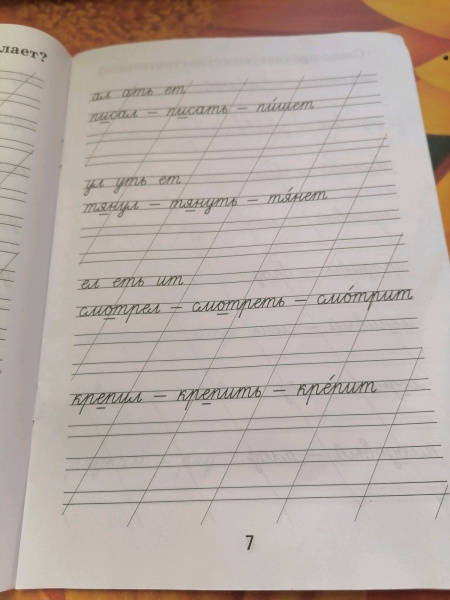 лает?
ал ать ет
писал – писать – пи́шет
ул уть ет
тянул – тянуть – тя́нет
ел еть ит
смотрел – смотреть – смо́трит
крепил – крепить – кре́пит
7